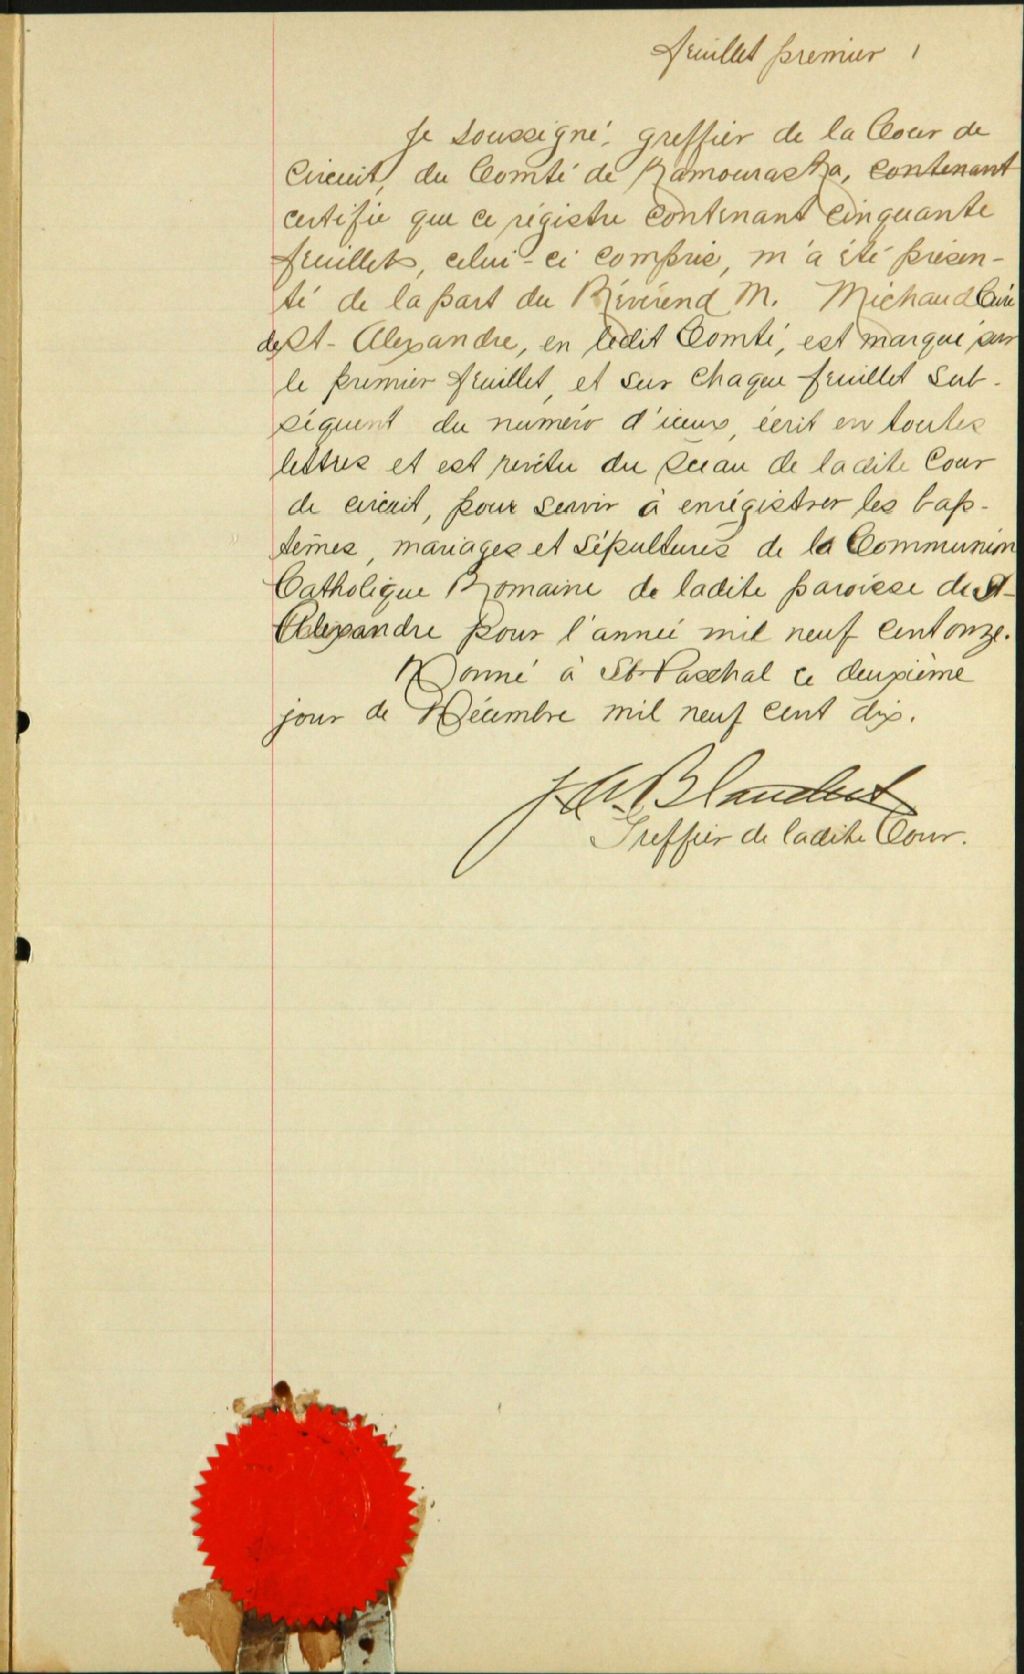 feuillet premier 1
Je soussigné, greffier de la Cour de
Circuit, du Comté de Kamouraska, contenant
certifie que ce régistre contenant cinquante
feuillets, celui-ci compris, m'a été présen-
té de la part du Révérend M. Michaud Curé
de St-Alexandre, en ledit Comté, est marqué sur
le premier feuillet, et sur chaque feuillet sub-
séquent du numéro d'iceux, écrit en toutes
lettres et est revêtu du sceau de ladite Cour
de circuit, pour servir à enrégistrer les bap-
têmes, mariages et sépultures de la Communion
Catholique Romaine de ladite paroisse de St-
Alexandre pour l'année mil neuf cent onze.
Donné à St-Paschal ce deuxième
jour de Décembre mil neuf cent dix.
Greffier de ladite Cour.